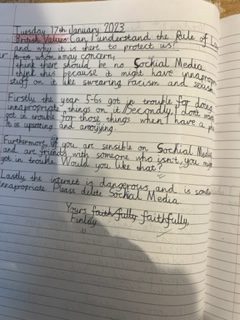 Tuesday 17th January 2023
British Values: Can I understand the Rule of
and why it is there to protect us?
to whom may concern,
I think there should be no Sochial Media
I think this because it might have unnaprop
stuff on it like swearing racism and
Firstly the year 5-6s got in trouble for doing
innapropriate things on it. Secondly, I dont
got in trouble for those things when I have a
It is upsetting and annoying.
Furthermore, if you are sensible on Sochial Media
and are friends with someone who isn't, you
got in trouble. Would you like that?
Lastly the internet is dangerous and is
innapropriate Please delete Sochial Media
Yours faithfully faithfully,
Finley